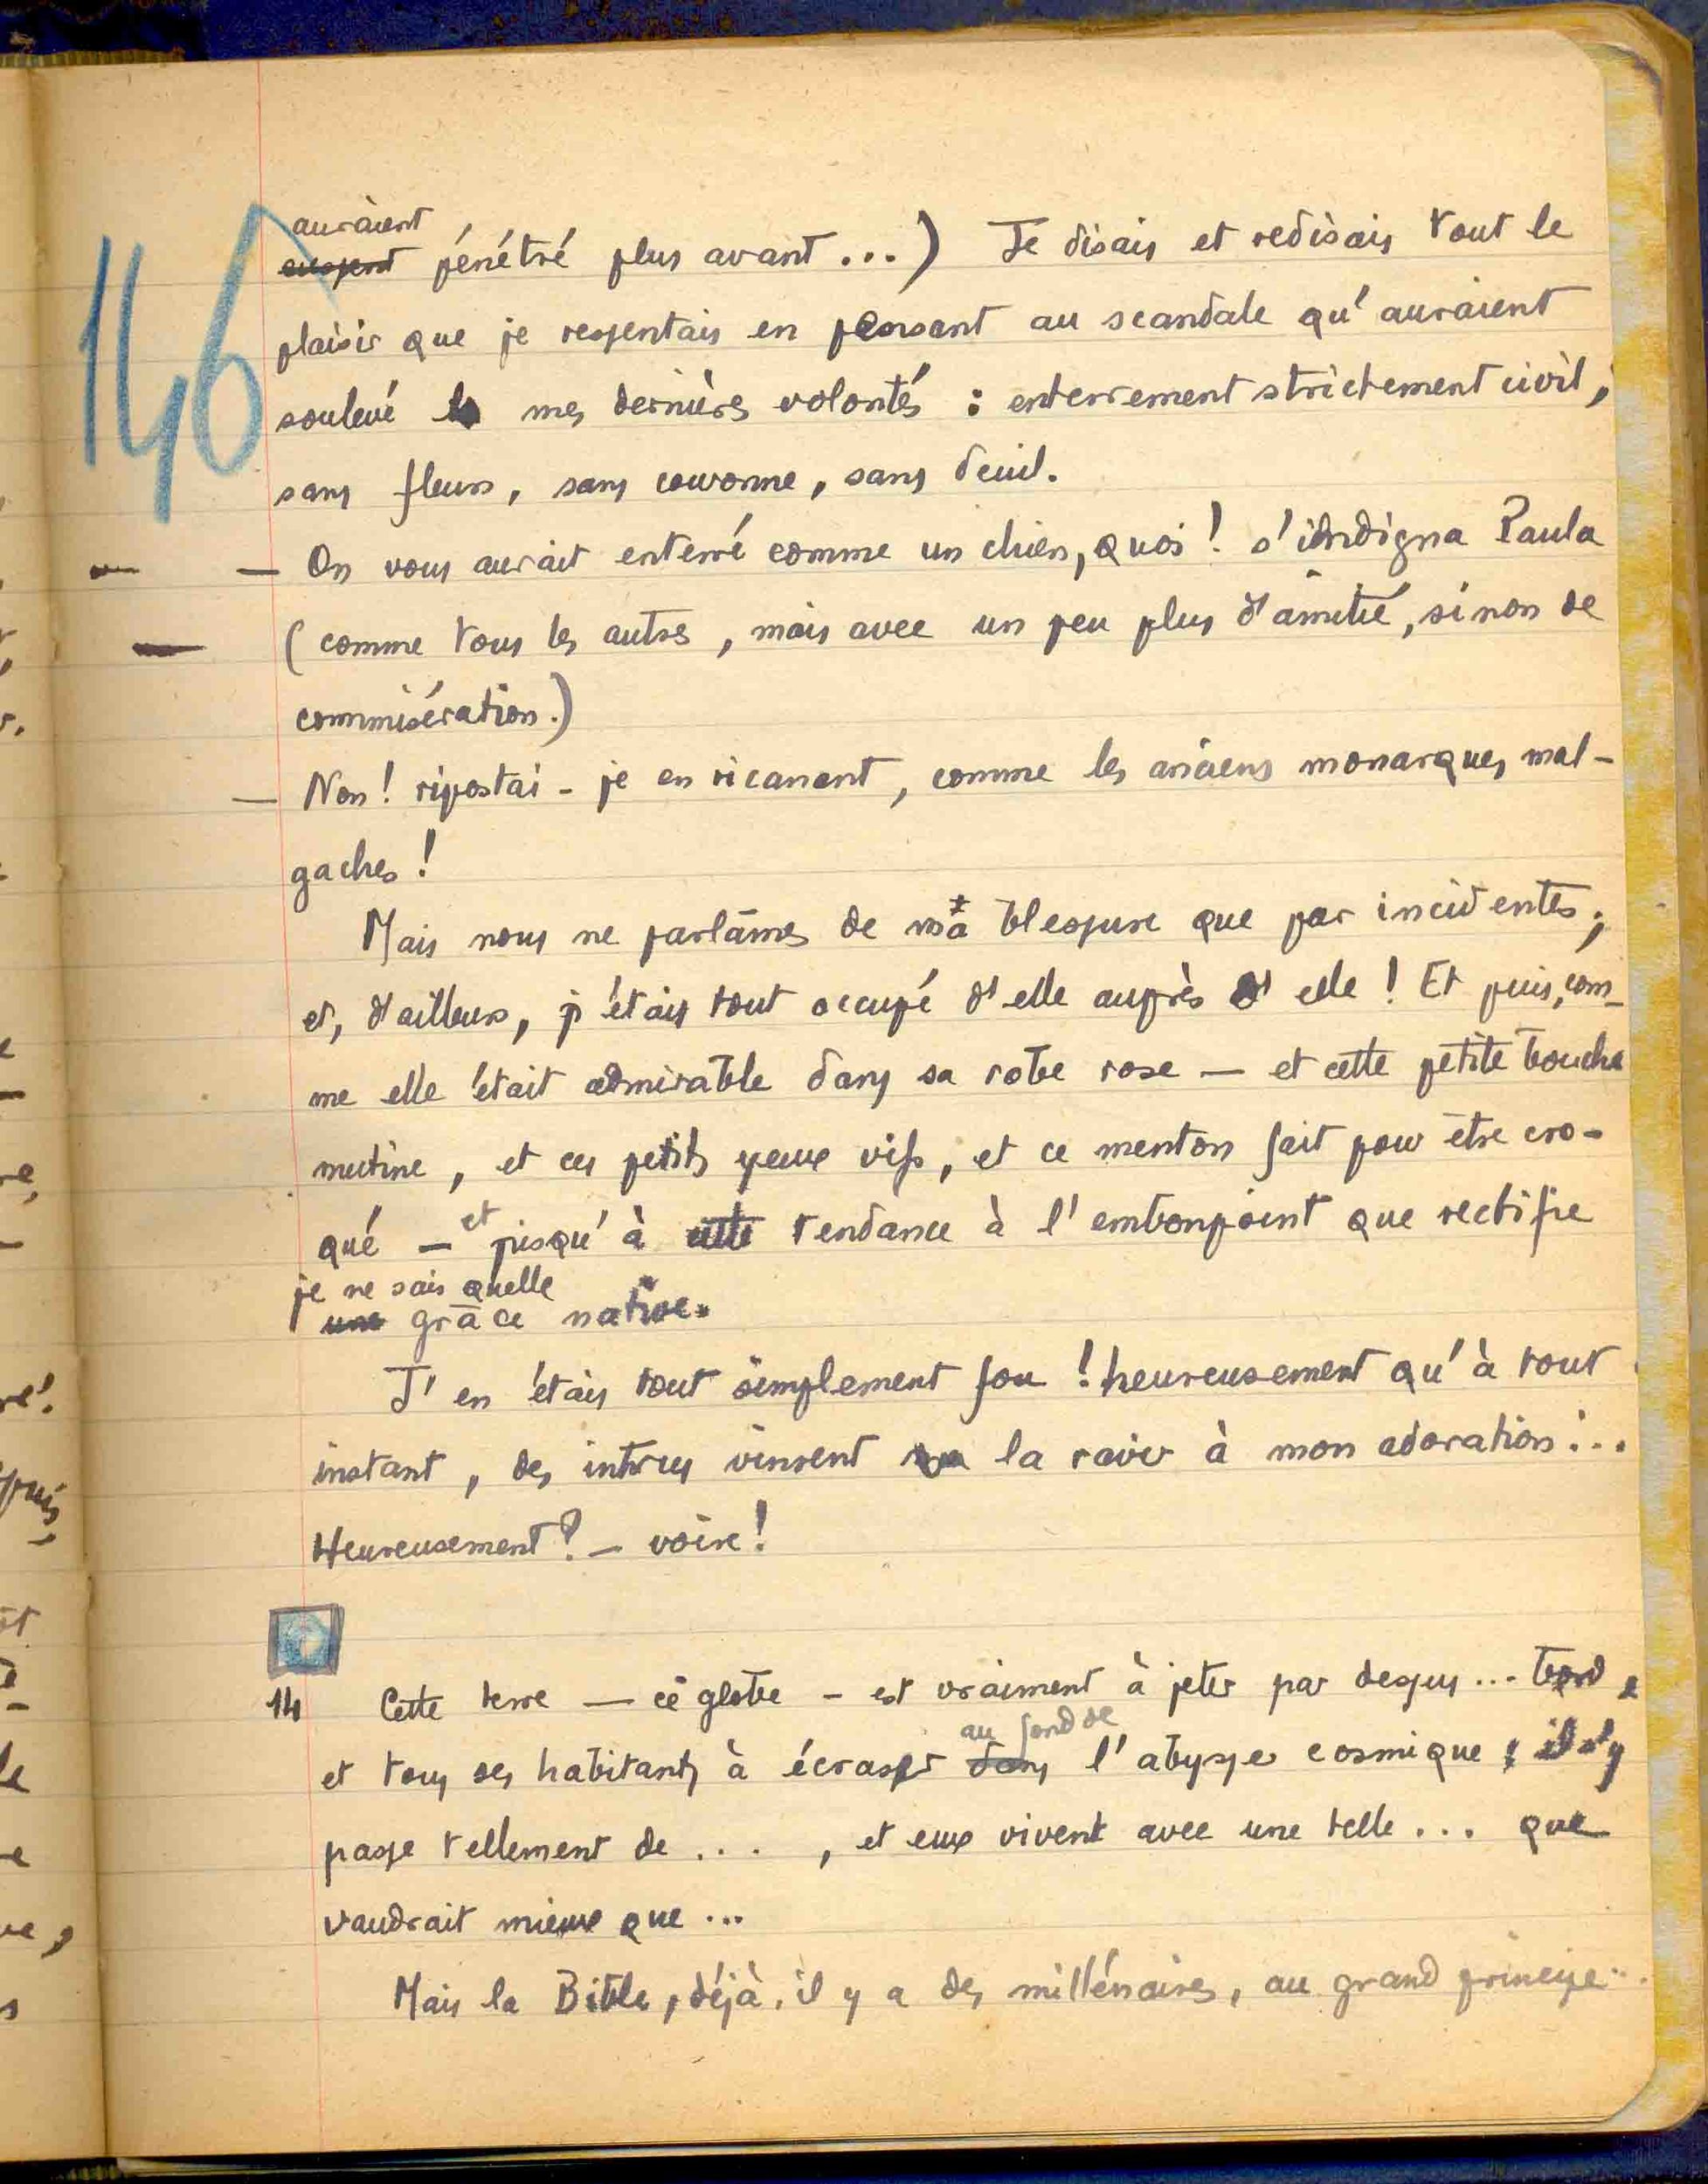 146
auraient
eussent pénétré plus avant...) Je disais et redisais tout le
plaisir que je ressentais en pensant au scandale qu'auraient
soulevé mes dernières volontés : enterrement strictement civil,
sans fleurs, sans couronne, sans deuil.
— On vous aurait enterré comme un chien, quoi! s'indigna Paula
(comme tous les autres, mais avec un peu plus d'amitié, sinon de
commisération.)
— Non! ripostai-je en ricanant, comme les anciens monarques mal-
gaches!
Mais nous ne parlâmes de ma blessure que par incidentes;
et, d'ailleurs, j'étais tout occupé d'elle auprès d'elle! Et puis, com-
me elle était admirable dans sa robe rose — et cette petite bouche
mutine, et ces petits yeux vifs, et ce menton fait pour être cro-
qué — et jusqu'à cette tendance à l'embonpoint que rectifie
je ne sais quelle
une grâce native.
J'en étais tout simplement fou! heureusement qu'à tout
instant, des intrus vinrent la ravir à mon adoration...
Heureusement? — voire!
14 Cette terre — ce globe — est vraiment à jeter par dessus... bord,
au fond de
et tous ses habitants à écraser dans l'abysse cosmique : il s'y
passe tellement de ...., et eux vivent avec une telle ... que
vaudrait mieux que ...
Mais la Bible, déjà, il y a des millénaires, au grand principe...